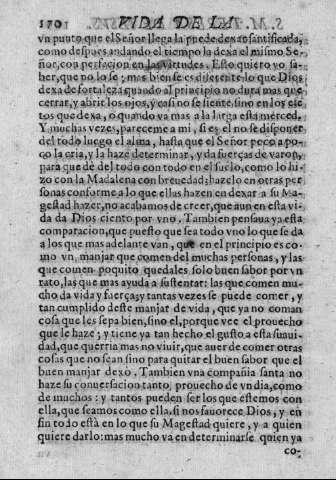 170 VIDA DE LA
vn punto que el Señor llega la puede dexar santificada,
como despues andando el tiempo la dexa el mismo Se-
ñor, con perfacion en las virtudes. Esto quiero yo sa-
ber, que yo lo se; mas bien se es diferente lo que Dios
dexa de fortaleza quando al principio no dura mas que
cerrar, y abrir los ojos, y casi no se siente, sino en los efe
tos que dexa, o quando va mas a la larga esta merced.
Y muchas vezes, pareceme a mi, si es el no se disponer
del todo luego el alma, hasta que el Señor poco a po-
co la cria, y la haze determinar, y da fuerças de varon,
para que dè del todo con todo en el suelo, como lo hi-
zo con la Madalena con breuedad: hazelo en otras per
sonas conforme a lo que ellas hazen en dexar a su Ma-
gestad hazer, no acabamos de creer, que aun en esta vi-
da da Dios ciento por vno. Tambien pensaua yo esta
comparacion, que puesto que sea todo vno lo que se da
a los que mas adelante van, que en el principio es co-
mo vn manjar que comen del muchas personas, y las
que comen poquito quedales solo buen sabor por vn
rato, las que mas ayuda a sustentar: las que comen mu-
cho da vida y fuerças; y tantas vezes se puede comer, y
tan cumplido deste manjar de vida, que ya no coman
cosa que les sepa bien, sino el, porque vee el prouecho
que le haze; y tiene ya tan hecho el gusto a esta suaui-
dad, que querria mas no viuir, que auer de comer otras
cosas que no sean sino para quitar el buen sabor que el
buen manjar dexò. Tambien vna compañia santa no
haze su conuersacion tanto, prouecho de vn dia, como
de muchos: y tantos pueden ser los que estemos con
ella, que seamos como ella, si nos fauorece Dios, y en
fin todo està en lo que su Magestad quiere, y a quien
quiere darlo: mas mucho va en determinarse quien ya
co-